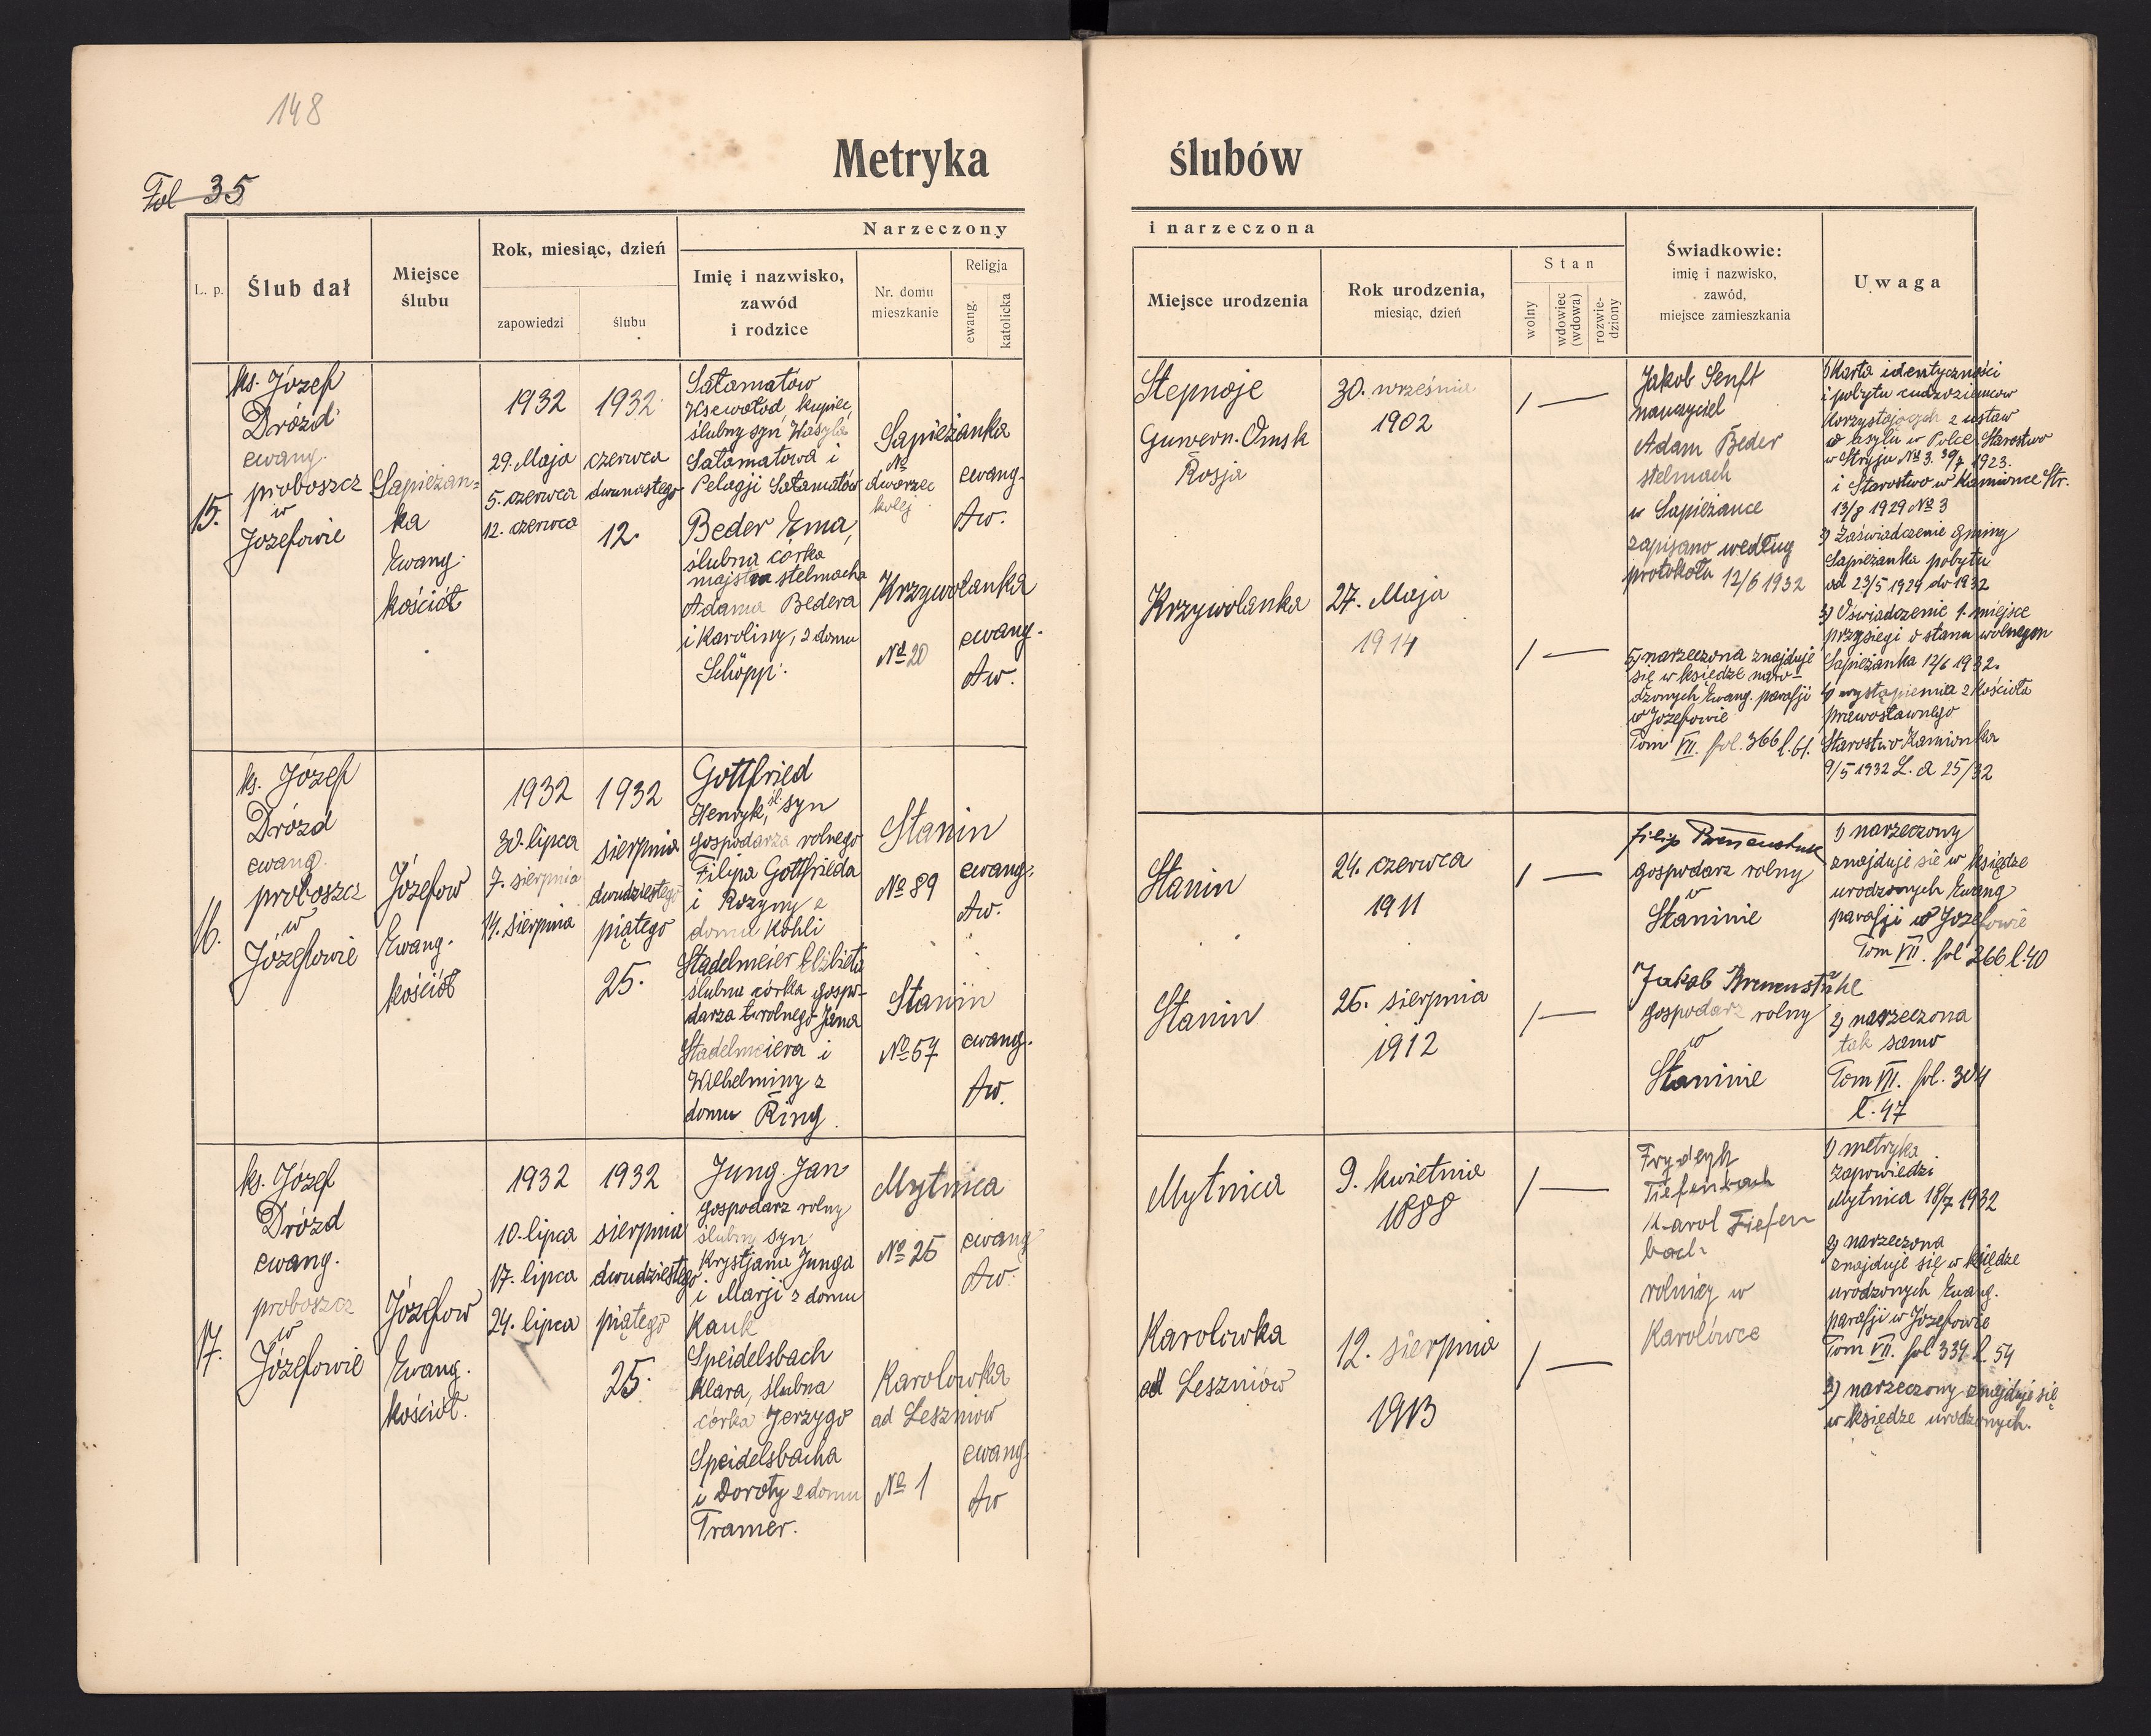 148
Fol 35
Metryka ślubów
L. p.
Ślub dał
Miejsce
ślubu
Rok, miesiąc, dzień
zapowiedzi
ślubu
Narzeczony
Imię i nazwisko,
zawód
i rodzice
Nr. domu
mieszkanie
Religja
ewang.
katolicka
i narzeczona
Miejsce urodzenia
Rok urodzenia,
miesiąc, dzień
Stan
wolny
wdowiec
(wdowa)
rozwie-
dziony
Świadkowie:
imię i nazwisko,
zawód,
miejsce zamieszkania
Uwaga
15.
ks. Józef
Drózd
ewang.
proboszcz
w
Józefowie
Sapieżan-
ka
Ewang.
kościół
1932
29. Maja
5. czerwca
12. czerwca
1932
czerwca
dwunastego
12.
Sałamatów
Wsewołod, kupiec,
ślubny syn Wasyla
Sałamatowa i
Pelagji Sałamatów
Beder Ema,
ślubna córka
majstra stelmacha
Adama Bedera
i Karoliny, z domu
Schöpp.
Sapieżanka
№
dworzec
kolej
Krzywolanka
№ 20
ewang.
Aw.
ewang.
Aw.
Stepnoje
Guwern. Omsk
Rosja
Krzywolanka
30. września
1902
27. Maja
1914
1 —
1 —
Jakob Senft
nauczyciel
Adam Beder
stelmach
w Sapieżance
zapisano według
protokołu 12/6 1932
5) narzeczona znajduje
się w księdze naro-
dzonych Ewang. parafji
w Józefowie
Tom VII. fol. 366 l. 61.
1) Karta identyczności
i pobytu cudzoziemcow
korzystających z ustaw
o asylu w Polce. Starostwo
w Stryju № 3. 30/7 1923.
i Starostwo w Kamionce Str.
13/8 1929 № 3
2) Zaświadczenie Gminy
Sapieżanka pobytu
od 23/5 1929 do 1932
3) Oświadczenie 1. miejsce
przysięgi o stanu wolnego
Sapieżanka 12/6 1932.
4) wystąpienia z Kościoła
prawosławnego
Starostwo Kamionka
9/5 1932 L. a 25/32
16.
ks. Józef
Drózd
ewang.
proboszcz
w
Józefowie
Józefow
Ewang.
kościół
1932
30. lipca
7. sierpnia
14. sierpnia
1932
sierpnia
dwudziestego
piątego
25.
Gottfried
Henryk, śl. syn
gospodarza rolnego
Filipa Gottfrieda
i Rozyny z
domu Kohli
Stadelmeier Elżbieta
ślubna córka gospo-
darza rolnego Jana
Stadelmeiera i
Wilhelminy z
domu Ring.
Stanin
№ 89
Stanin
№ 57
ewang.
Aw.
ewang.
Aw.
Stanin
Stanin
24. czerwca
1911
26. sierpnia
1912
1 —
1 —
Filip
gospodarz rolny
w
Staninie
Jakob
gospodarz rolny
w
Staninie
1) narzeczony
znajduje się w księdze
urodzonych Ewang
parafji w Józefowie
Tom VII. fol 266 l. 40
2) narzeczona
tak samo
Tom VII. fol. 304
l. 47
17.
ks. Józef
Drózd
ewang.
proboszcz
w
Józefowie
Józefow
Ewang.
kościół.
1932
10. lipca
17. lipca
24. lipca
1932
sierpnia
dwudziestego
piątego
25.
Jung Jan
gospodarz rolny
ślubny syn
Krystjana Junga
i Marji z domu
Kauk
Speidelsbach
Klara, ślubna
córka Jerzygo
Speidelsbacha
i Doroty z domu
Tramer.
Mytnica
№ 25
Karolowka
ad Leszniow
№ 1
ewang
Aw.
ewang.
Aw
Mytnica
Karolowka
ad Leszniów
9. kwietnia
1888
12. sierpnia
1913
1 —
1 —
Frydryk
Tiefenbach
Karol Tiefen
bach
rolnicy w
Karolówce
1) metryka
zapowiedzi
Mytnica 18/7 1932
2) narzeczona
znajduje się w księdze
urodzonych Ewang.
parafji w Józefowie
Tom VII. fol 334 l. 54
3) narzeczony znajduje się
w księdze urodzonych.